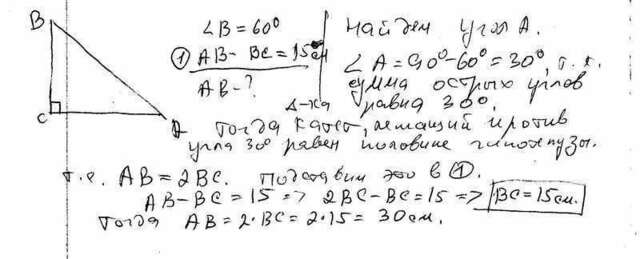 B
C
A
∠B = 60°
① AB - BC = 15см
AB - ?
Найдем угол A.
∠A = 90° - 60° = 30°, т.к.
сумма острых углов
Δ-ка равна 90°.
Тогда катет, лежащий против
угла 30° равен половине гипотенузы.
т.е. AB = 2BC. Подставим это в ①.
AB - BC = 15 => 2BC - BC = 15 => BC = 15см.
Тогда AB = 2·BC = 2·15 = 30см.